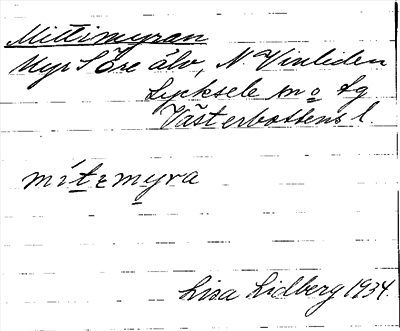 Mittimyran
Myr S Öse älv, N Vinliden
Lycksele sn o lg
Västerbottens l.
mítɩmyra
Lisa Lidberg 1934.